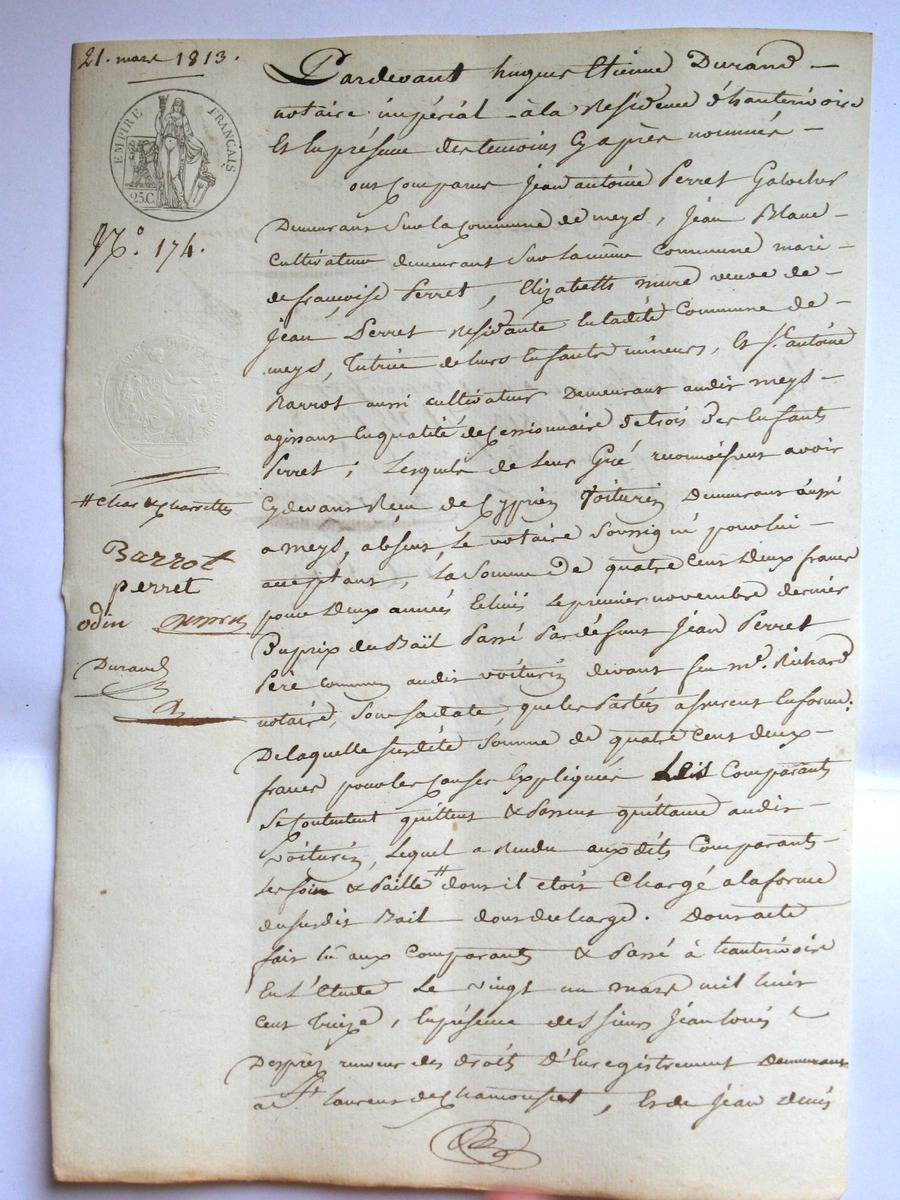 21. mars 1813.
EMPIRE FRANÇAIS
25 C.
N.° 174.
# Char & Charrettes
Barrot
perret
odin
Durand
Pardevant hugues Etienne Durand
notaire impérial à la Residence d'hauterivoire
Et En présence des temoins Cy après nommés
ont Comparus Jean antoine Perret Galocher
Demeurant Sur la Commune de meys, Jean Blanc
Cultivateur demeurant Sur la même Commune mari
de françoise Perret, Elizabeth mure veuve de
Jean Perret Residante En ladite Commune de
meys, Tutrice de leurs Enfants mineurs, Et Sr. antoine
Barrot aussi cultivateur Demeurant audit meys
agissant En qualité de Cessionnaire de trois des Enfants
Perret; Lesquels de leur Gré reconnoissent avoir
Cy devant Recu de Cyprien Voiturin Demeurant aussi
a meys, absent, Le notaire Soussigné pour lui
acceptant, La Somme de quatre Cent Deux francs
pour Deux années Echues Le premier novembre dernier
Du prix du Bail Passé Par défunt Jean Perret
Père commun audit voiturin devant feu me. Richard
notaire, Sous sa date, que les Parties assurent En forme:
De laquelle Susdite Somme de quatre Cent deux
francs pour les Causes Expliquées Lesdits Comparants
Se Contentent quittent & Passent quittance audit
Voiturin, Lequel a Rendu auxdits Comparants
Les foin & Paille # dont il etoit Chargé a la forme
du susdit Bail dont decharge. Dont acte
fait lû aux Comparants & Passé à hauterivoire
En L'Etude Le vingt un mars mil huit
Cent treize, En présence des Sieurs Jean louis
Despréz receveur des droits d'Enregistrement demeurant
a St Laurent de Chamousset, Et de Jean denis